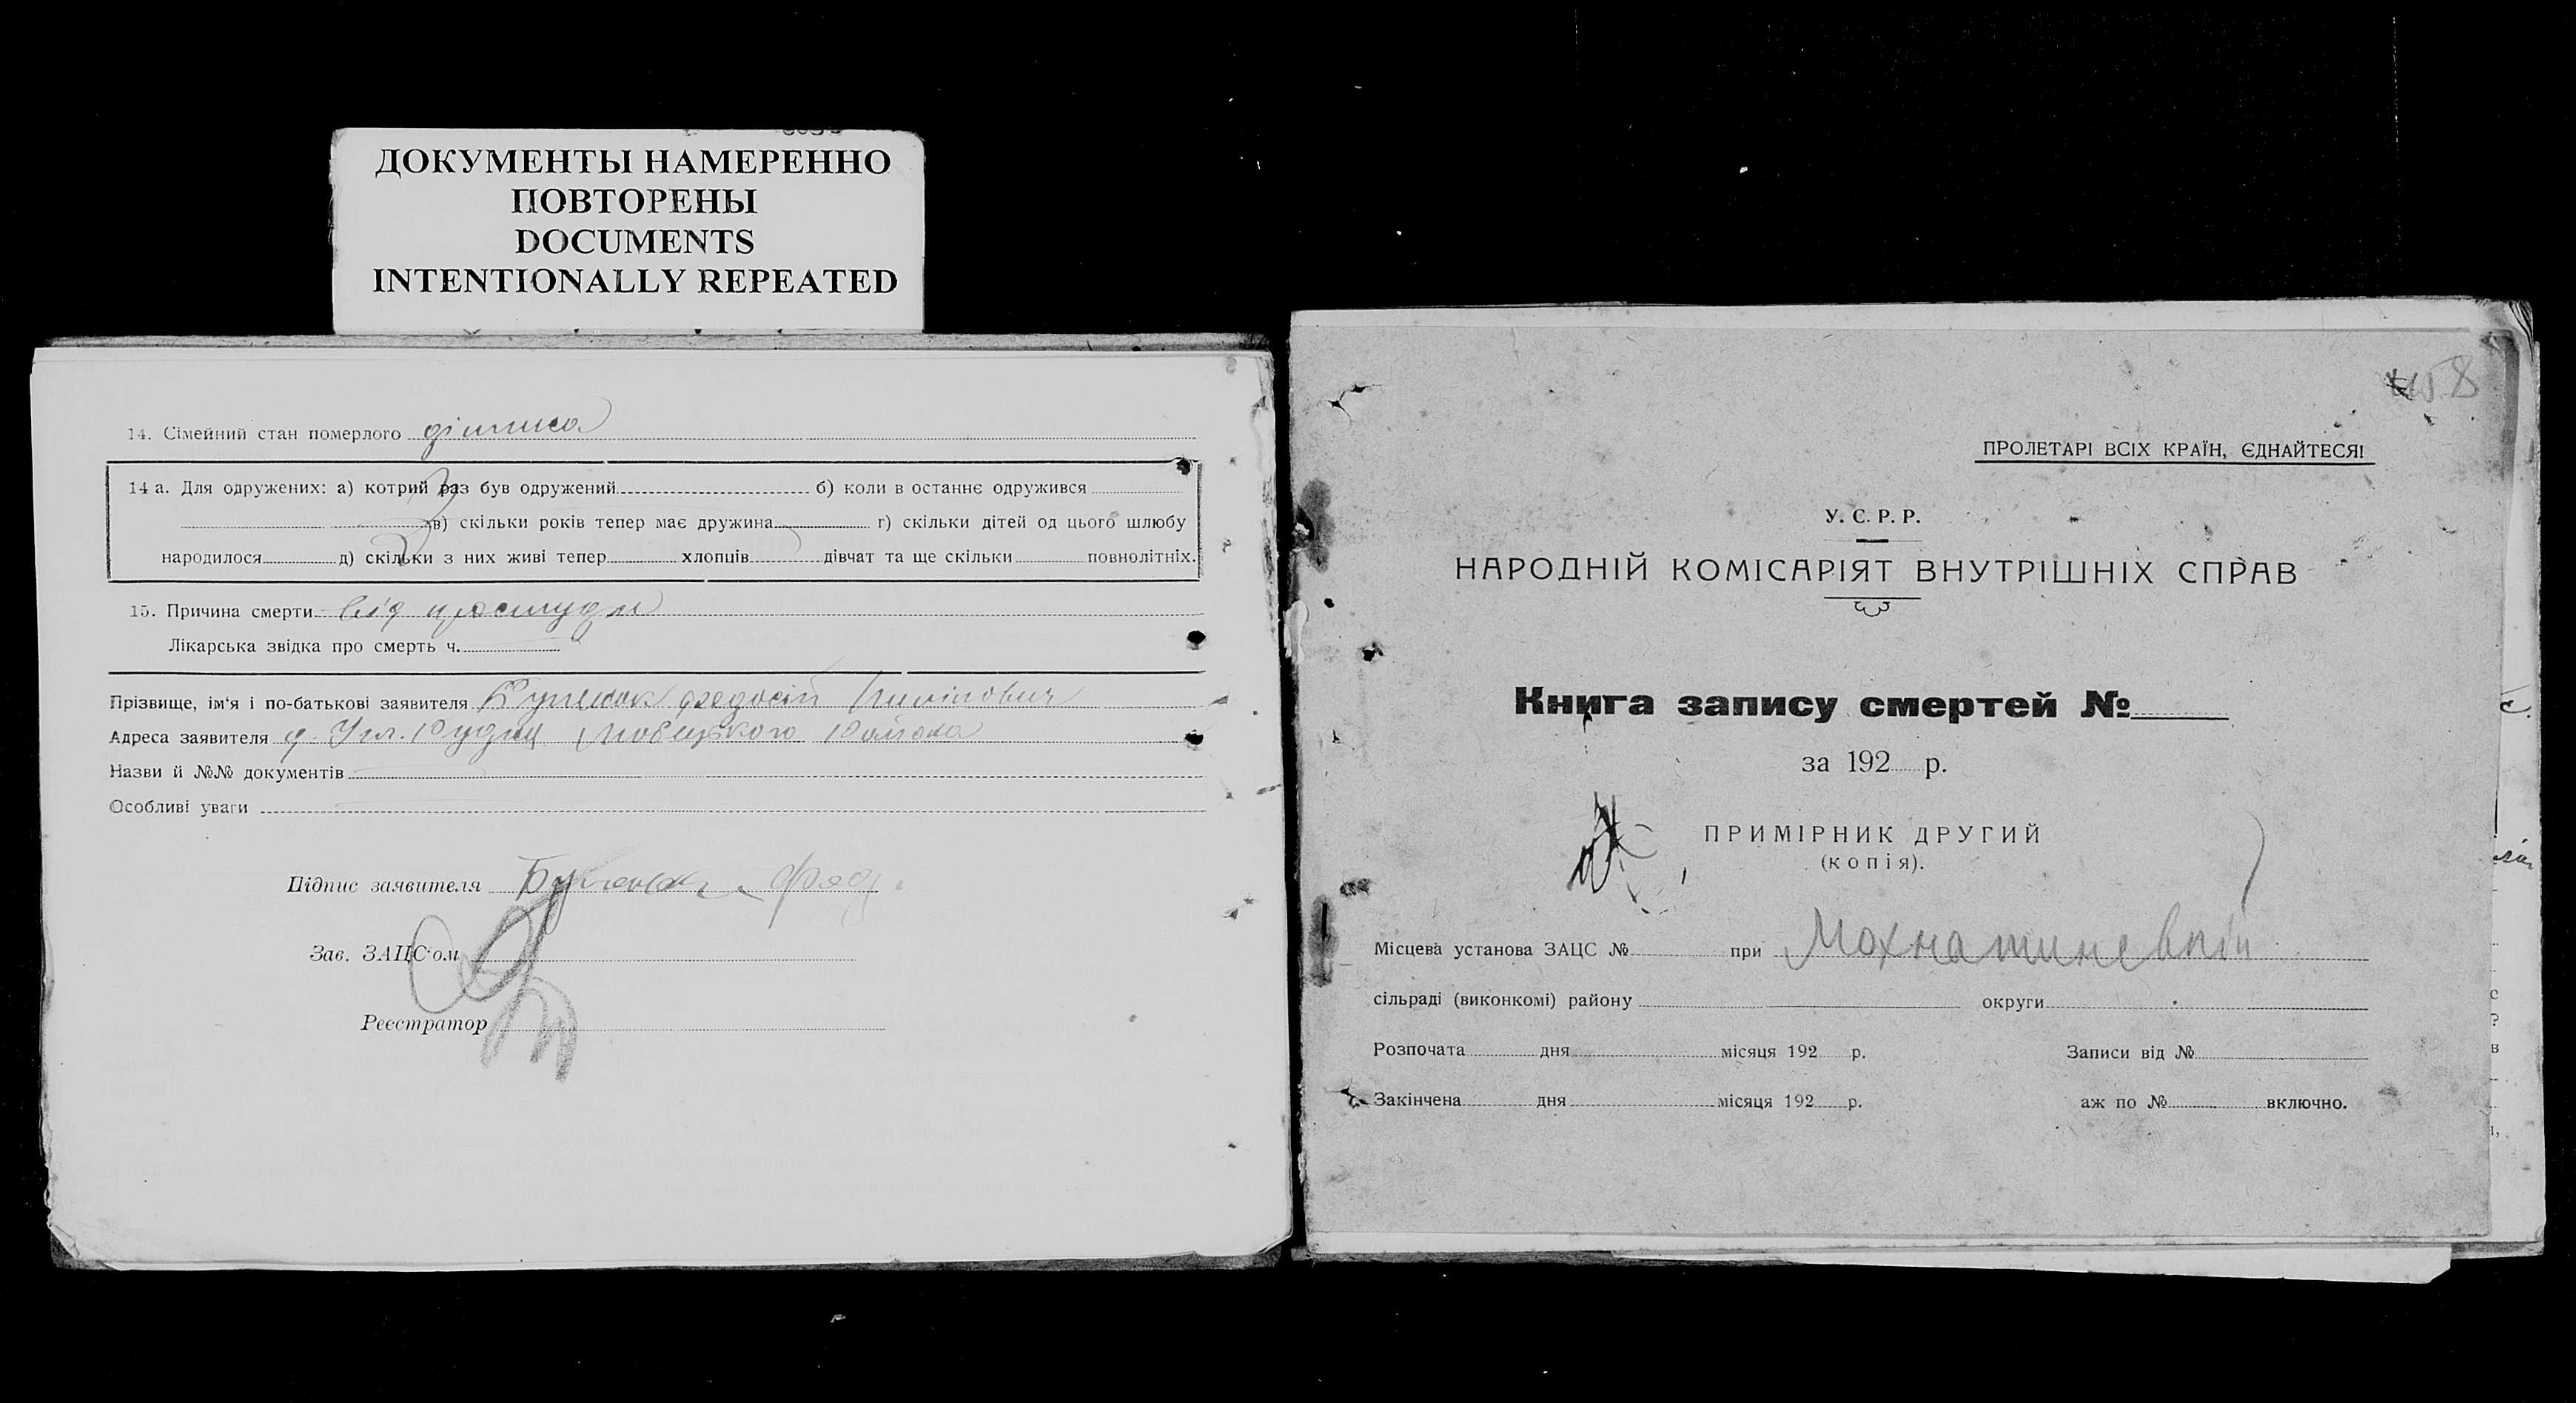 ДОКУМЕНТЫ НАМЕРЕННО
ПОВТОРЕНЫ
DOCUMENTS
INTENTIONALLY REPEATED
14. Сімейний стан померлого
14 а. Для одружених: а) котрий раз був одружений б) коли в останнє одружився
в) скільки років тепер має дружина г) скільки дітей од цього шлюбу
народилося д) скільки з них живі тепер хлопців дівчат та ще скільки повнолітніх.
15. Причина смерти від простуди
Лікарська звідка про смерть ч.
Прізвище, ім'я і по-батькові заявителя Федосій Пилипович
Адреса заявителя Рудня
Назви й №№ документів
Особливі уваги
Підпис заявителя
Зав. ЗАЦС'ом
Реєстратор
58
ПРОЛЕТАРІ ВСІХ КРАЇН, ЄДНАЙТЕСЯ!
У. С. Р. Р.
НАРОДНІЙ КОМІСАРІЯТ ВНУТРІШНІХ СПРАВ
Книга запису смертей №
за 192 р.
ПРИМІРНИК ДРУГИЙ
(копія).
Місцева установа ЗАЦС № при Мохнатинській
сільраді (виконкомі) району округи
Розпочата дня місяця 192 р. Записи від №
Закінчена дня місяця 192 р. аж по № включно.